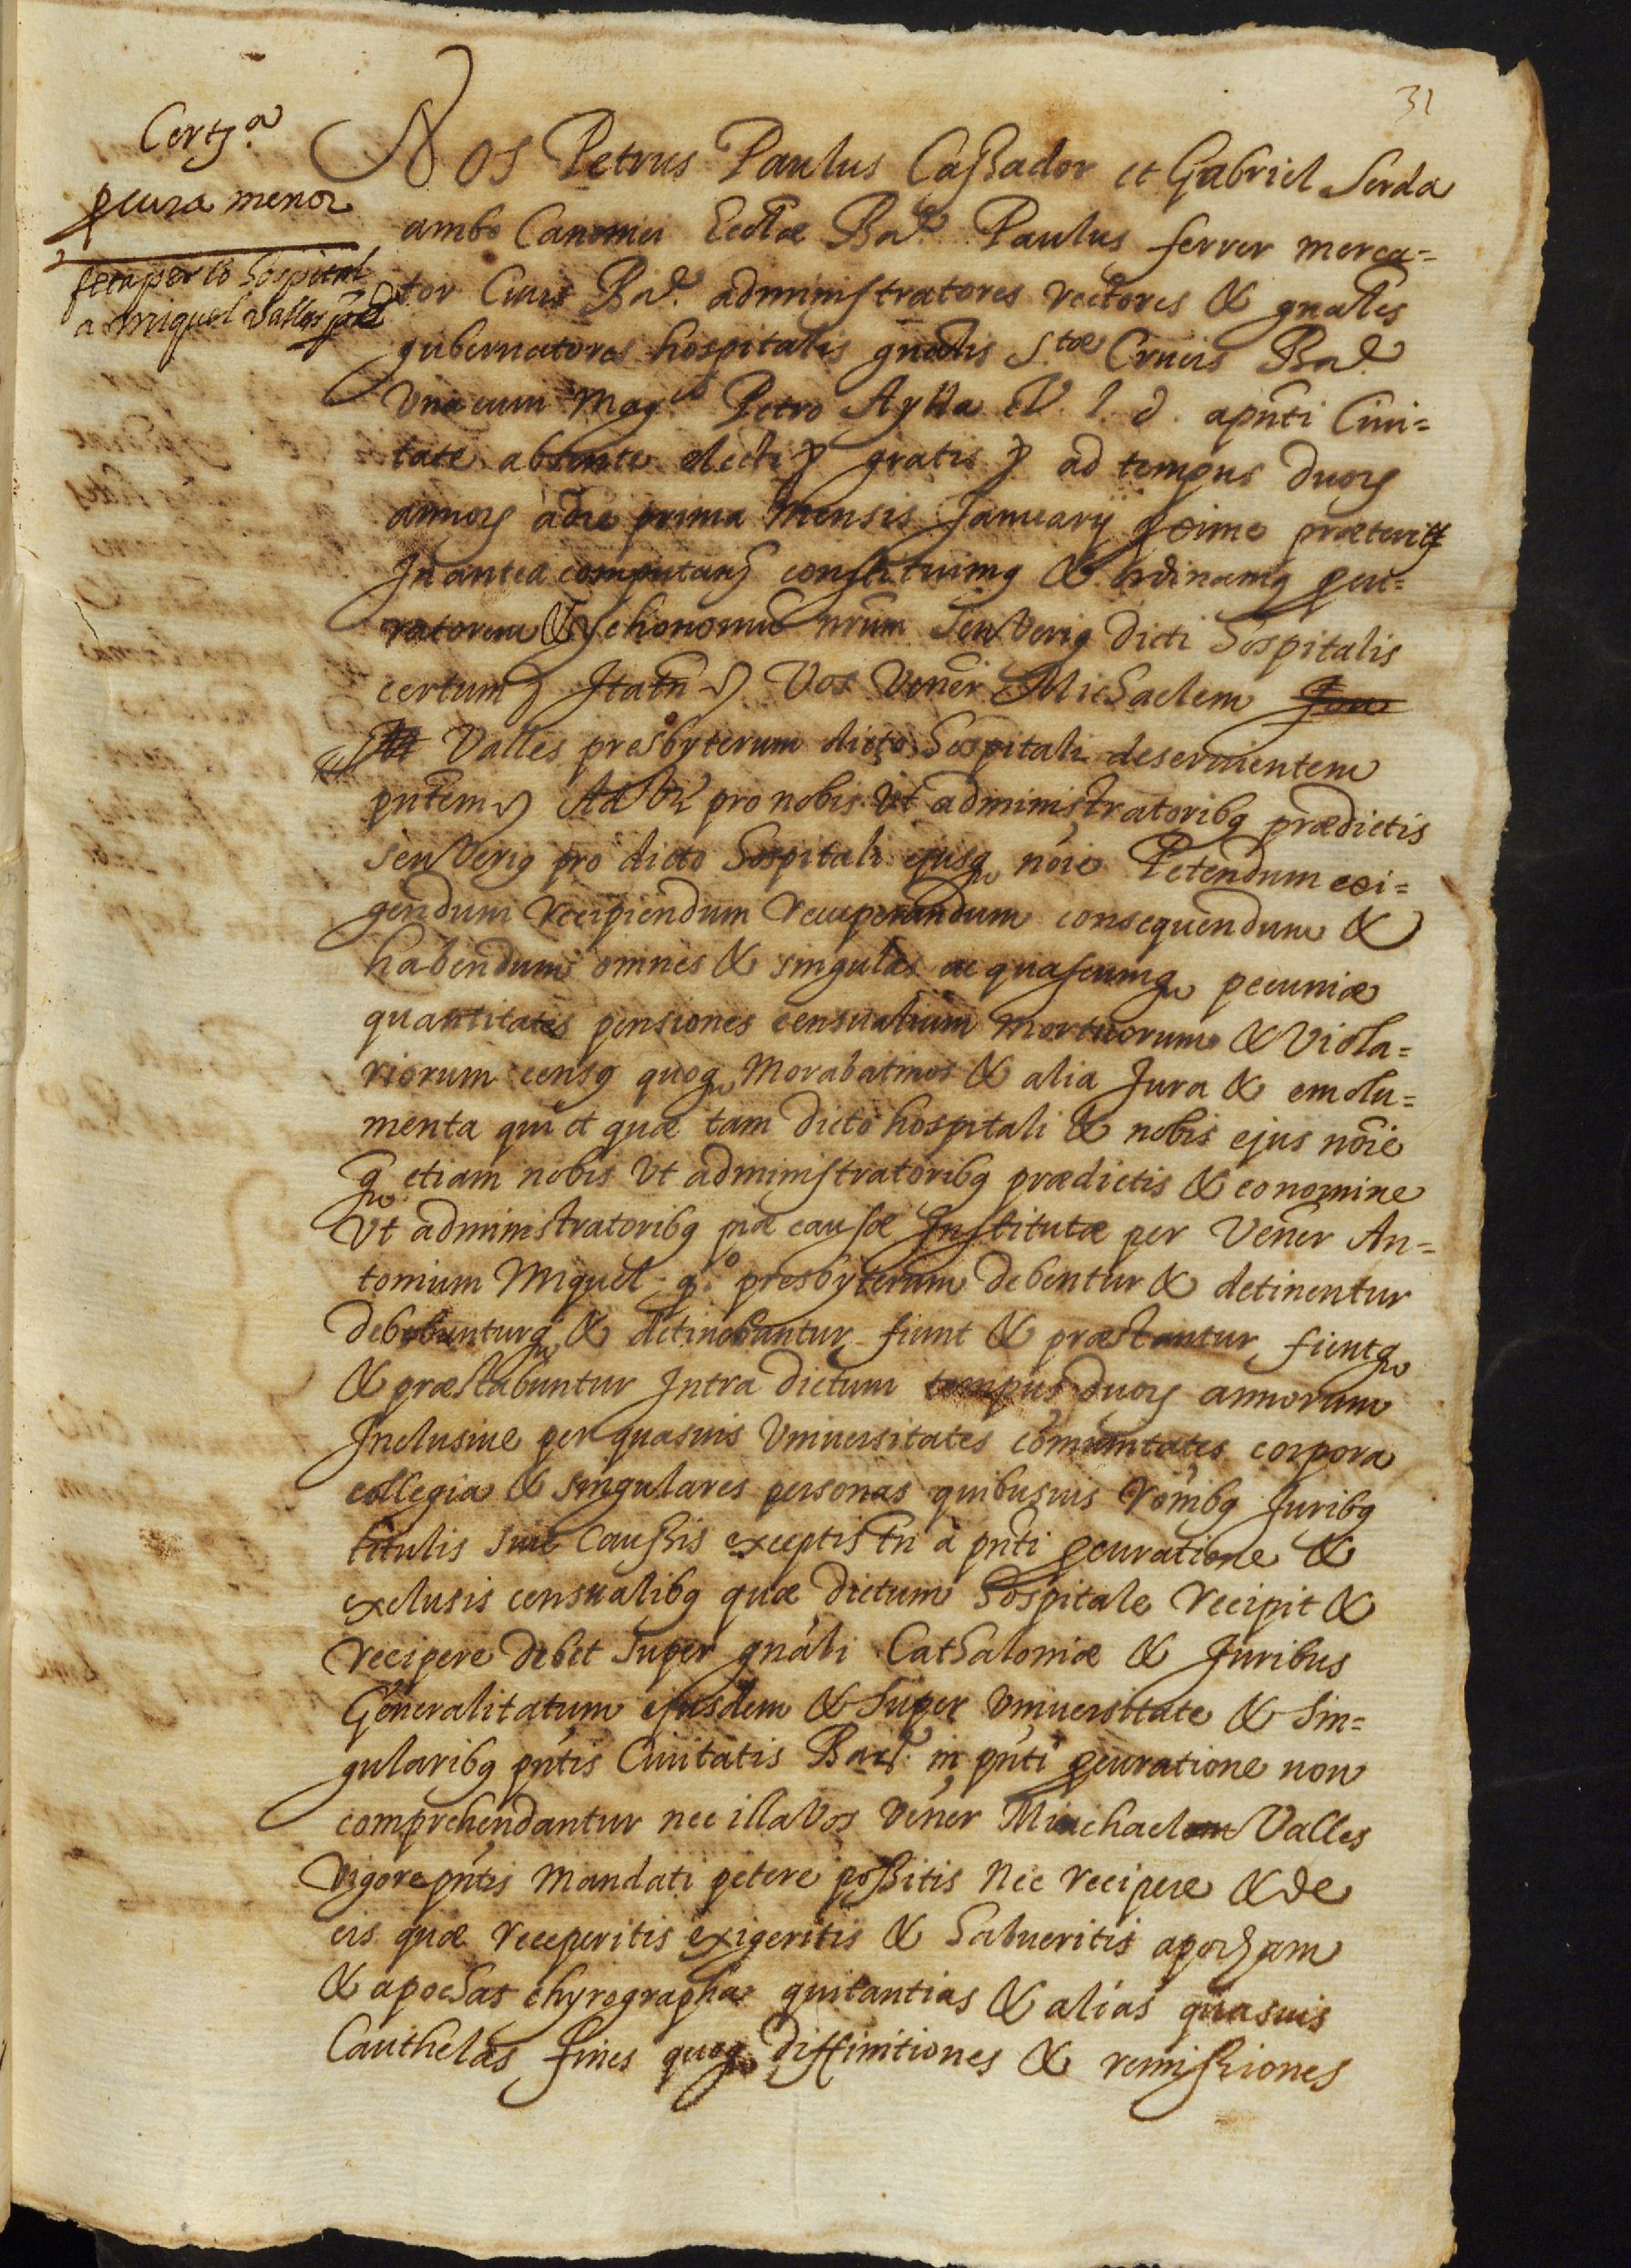 31
Certz.ª
pcura menor
feta per lo Hospital
a miquel Valles pre
Nos Petrus Paulus Caßador et Gabriel Serda
ambo Canonici Eccłiæ Baꝛ. Paulus ferrer merca=
tor Ciuis Baꝛ. administratores rectores & gnales
gubernatores hospitalis gnalis S.tæ Crucis Baꝛ.
Vna cum Mag.co Petro Aylla V. J. d. apnti Ciui=
tate absente electi gratis ad tempus duorʒ
annorʒ adie prima Mensis Januarij pxime præteriti
Inantea computanʒ constituimꝰ & ordinamꝰ pcu=
ratorem & ychonomũ nrum seu Veriꝰ dicti Hospitalis
certum Itatñ Vos Veñer Michaelem
Valles presbyterum dicto Hospitali deseruientem
pñtem Ad pro nobis Vt administratoribꝰ prædictis
seu Veriꝰ pro dicto Hospitali ejusqꝫ nõie Petendum exi=
gendum Recipiendum Recuperandum consequendum &
habendum omnes & singulas ac quascumqꝫ pecuniæ
quantitates pensiones censualium Mortuorum & Viola=
riorum censꝰ quoqꝫ Morabatinos & alia Jura & emolu=
menta qui et quæ tam dicto hospitali & nobis ejus nõie
qꝫ etiam nobis Vt administratoribꝰ prædictis & eo nomine
Vt administratoribꝰ piæ causæ Institutæ per Veñer An=
tonium Miquel q.º presbyterum debentur & detinentur
debebunturqꝫ & detinebuntur fiunt & præstantur fientqꝫ
& præstabuntur Intra dictum tempus duorʒ annorum
Inclusiue per quasuis Vniuersitates cõmunitates corpora
collegia & singulares personas quibusuis rõnibꝰ Juribꝰ
titulis siue Caußis exceptis tñ à pñti pcuratione &
exclusis censualibꝰ quæ dictum Hospitale Recipit &
Recipere debet super gnãli Cathaloniæ & Juribus
Generalitatum ejusdem & super Vniuersitate & Sin=
gularibꝰ pñtis Ciuitatis Barꝛ. in pñti pcuratione non
comprehendantur nec illa Vos Veñer Michaelem Valles
Vigore pñtis Mandati petere poßitis Nec recipere & de
eis quæ receperitis exigeritis & habueritis apocham
& apochas chyrographa quitantias & alias quasuis
Cauthelas fines quoqꝫ diffinitiones & remißiones